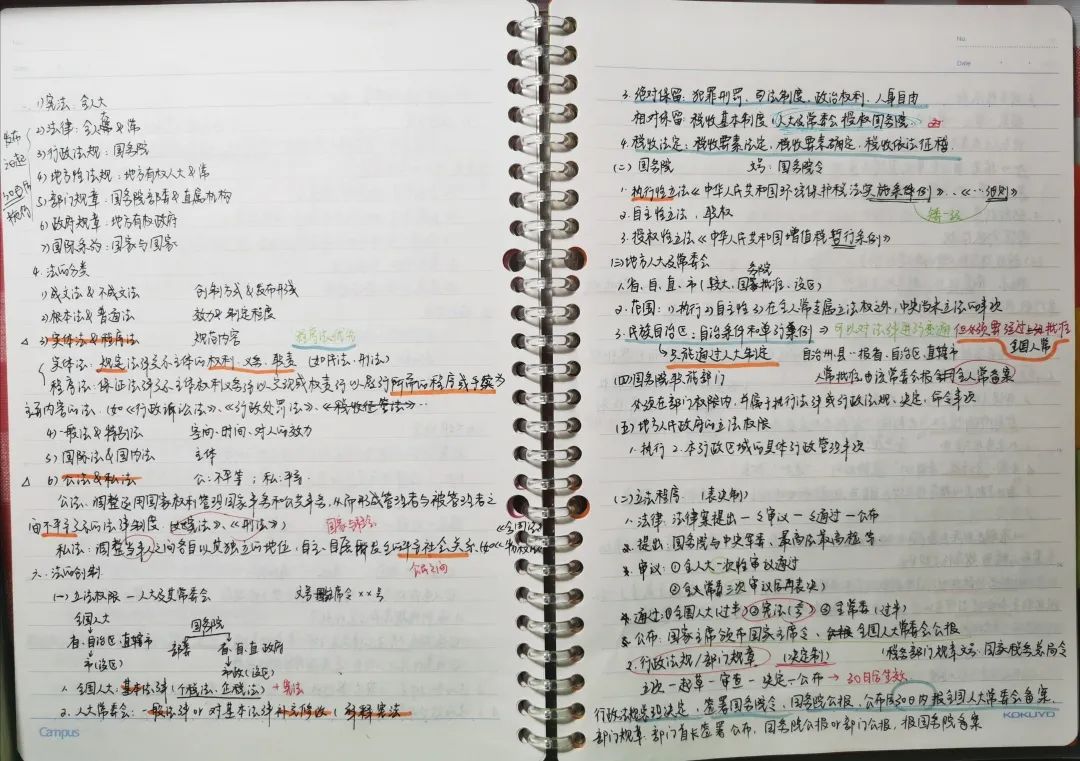 1) 宪法:全人大
2) 法律:全人大&常
3) 行政法规:国务院
4) 地方性法规:地方有权人大&常
5) 部门规章:国务院部委&直属机构
6) 政府规章:地方有权政府
7) 国际条约:国家与国家
发布
30日后
4. 法的分类
1) 成文法&不成文法 创制方式&发布形式
2) 根本法&普通法 效力&制定程度
△ 3) 实体法&程序法 规范内容
实体法:规定法律关系主体的权利、义务、职责 (如民法、刑法)
程序法:保证法律关系主体权利义务得以实现或权责得以履行所需的程序或手续为
主要内容的法、(如《行政诉讼法》、《行政处罚法》、《税收征管法》…
4) 一般法&特别法 空间、时间、对人的效力
5) 国际法&国内法 主体
△ 6) 公法&私法 公:不平等;私:平等.
公法:调整运用国家权利管理国家事务和公共事务,从而形成管理者与被管理者之
间不平等关系的法律制度.
《刑法》)
私法:调整 人之间各自以其独立的地位,自主、自
社会关系
六. 法的创制
(一) 立法权限 — 人大及其常委会 文号 主席令××号
全国人大
省、自治区、直辖市
市(设区)
国务院
部委 省、自、直政府
市政(设区)
1. 全国人大:基本法律(个税法、企税法) +宪法
2. 人大常委会:一般法律 or 对基本法律补充修改、解释宪法
Campus
No.
Date
3. 绝对保留:犯罪刑罚、司法制度、政治权利、人身自由
相对保留:税收基本制度(人大及常委会授权国务院)
4. 税收法定:税收要素法定、税收要素确定、税收依法征稽.
(二) 国务院 文号:国务院令
1. 执行性立法《中华人民共和国环境保护税法实施条例》、《…细则》
2. 自主性立法、职权
3. 授权性立法《中华人民共和国增值税暂行条例》
(三) 地方人大及常委会
1. 省、自、直、市(较大、国务院批准、设区)
2. 范围:1) 执行 2) 自主性 3) 在全人常专属立法权之外,中央尚未立法的事项
3. 民族自治区:自治条例和单行条例 ⇒ 可以对法律进行变通 但必须要经过 批准
全国人常
只能通过人大制定 自治州、县→报省、自治区、直辖市
人常批准,由该常委会报 全人常备案
(四) 国务院职能部门
必须在部门权限内,并属于执行法律或行政法规、决定、命令事项
(五) 地方人民政府的立法权限
1. 执行 2. 本行政区域的具体行政管理事项
(二) 立法程序. (表决制)
1. 法律:法律案提出—审议—通过—公布
提出:国务院与中央军委、最高法最高检等
审议:①全人大一次性审议通过
②全人常委三次审议后再表决)
通过:①全国人大(过半) ②宪法 ③常委(过半)
公布:国家主席颁布国家主席令、全国人大常委会公报
2. 行政法规/部门规章 (决定制) (税务部门规章文号:国家税务总局令)
立项—起草—审查—决定—公布 → 30日后生效
行政法规 决定,签署国务院令,国务院公报,公布后30日内报全国人大常委会备案.
部门规章:部门首长签署公布,国务院公报or部门公报,报国务院备案
KOKUYO